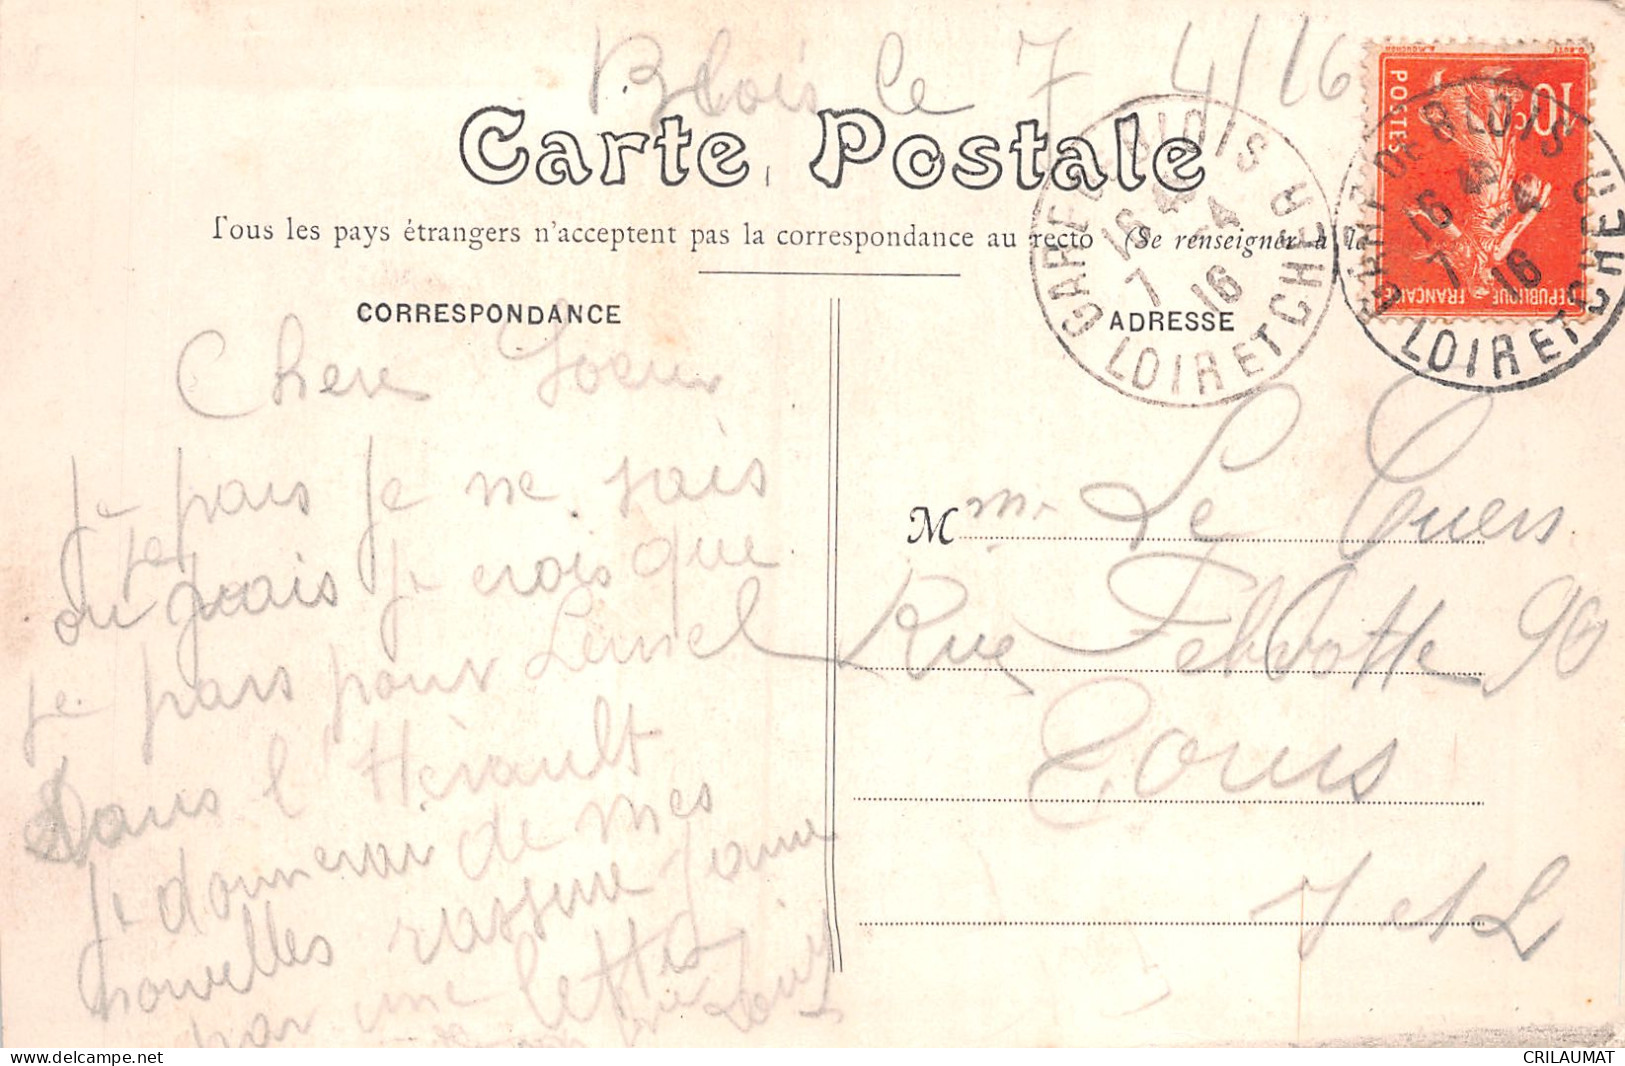 Blois le 7 4/16
Carte Postale
Tous les pays étrangers n'acceptent pas la correspondance au recto (Se renseigner à la
CORRESPONDANCE
Chere Soeur
Je pars je ne sais
ou mais je crois que
je pars pour Lunel
Dans l'Hérault
Je donnerai de mes
nouvelles rassure Jeanne
par une lettre
ADRESSE
Mme Le Cuers
Rue Febvotte 90
Tours
I et L
GARE DE BLOIS
16 4
7 -4
16
LOIR ET CHER
GARE DE BLOIS
16 4
7 -4
16
LOIR ET CHER
POSTES
10c
REPUBLIQUE FRANÇAISE
delcampe.net
CRILAUMAT